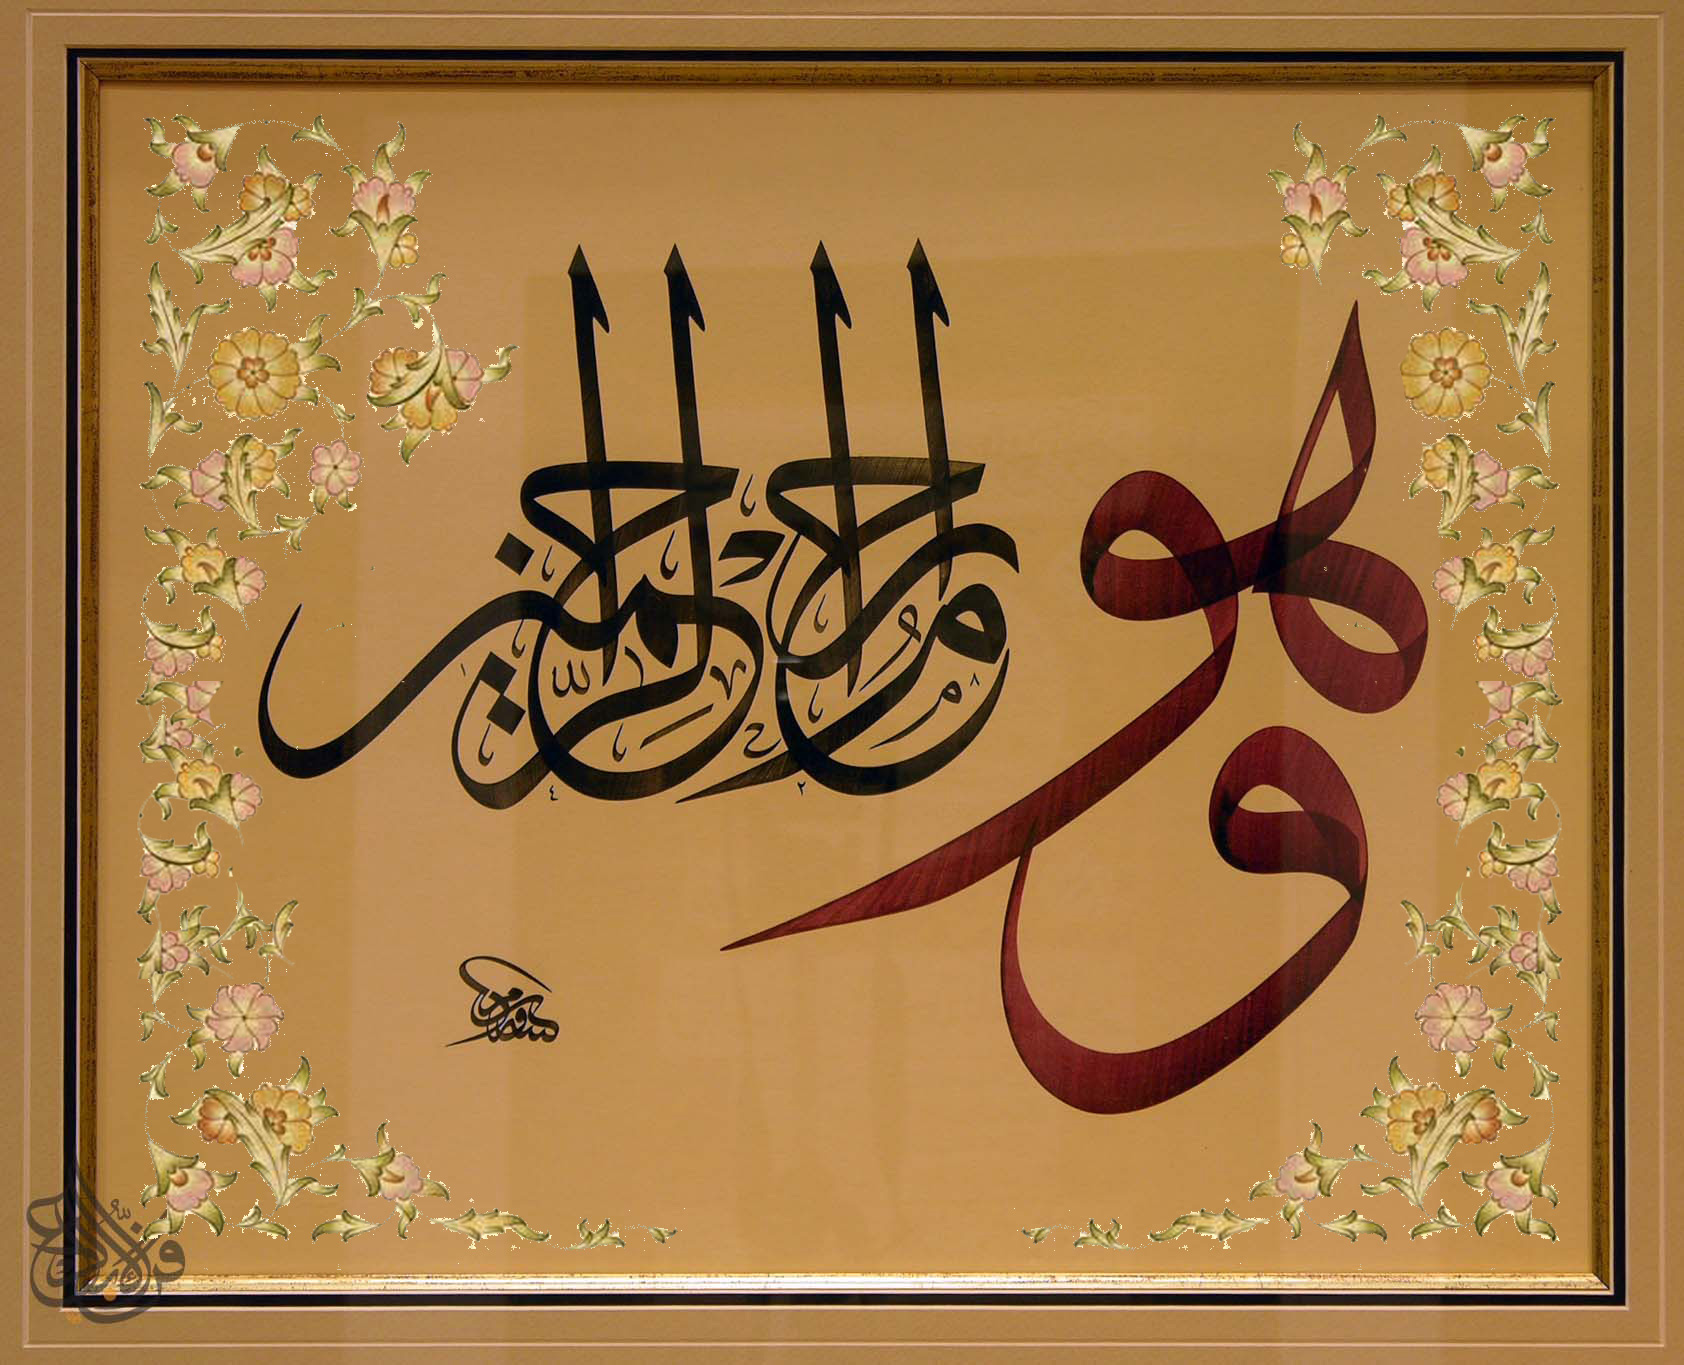 وهو ارحم الراحمين